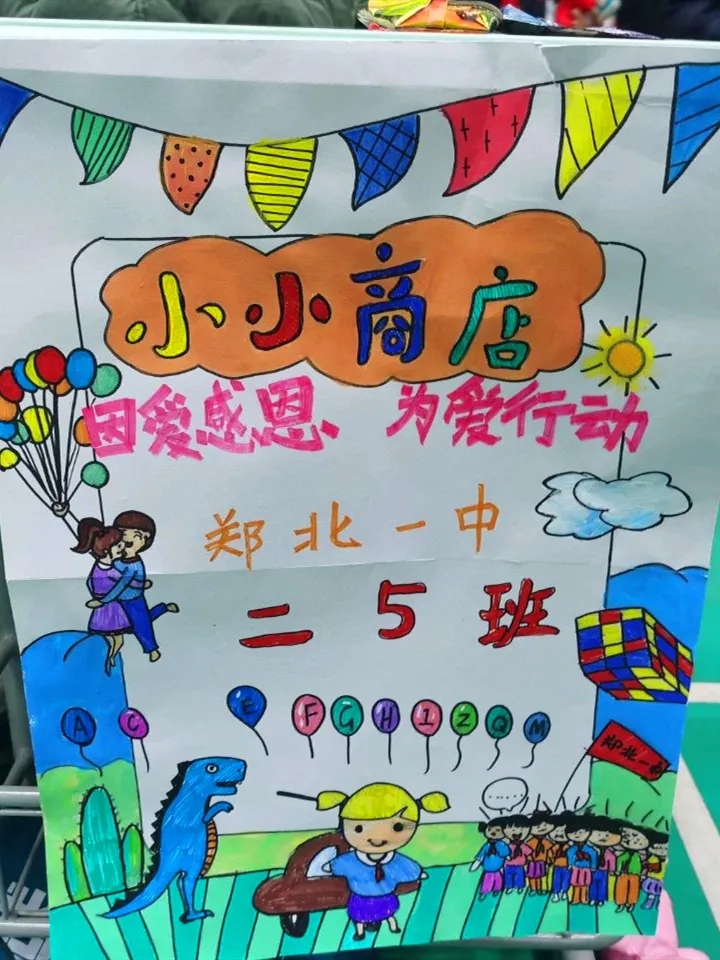 小小商店
因爱感恩 为爱行动
郑北一中
二5班
A C E F G H 1 Z Q M
郑北一中